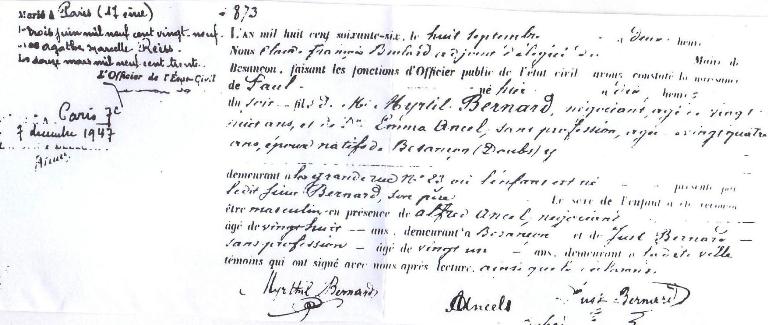 Marié à Paris (17ème)
trois juin mil neuf cent vingt neuf
Agathe Marcelle Reiss
Le douze mars mil neuf cent trente
L'Officier de l'Etat Civil
Paris 7e
7 décembre 1947
873
L'AN mil huit cent soixante-six, le huit septembre à deux heures
Nous Claude François adjoint délégué du Maire de
Besançon, faisant les fonctions d'Officier public de l'état civil avons constaté la naissance
de Paul né hier à dix heures
du soir fils de Mr Myrtil Bernard, négociant, âgé de vingt
huit ans, et de De Emma Ancel, sans profession, âgée de vingt quatre
ans, époux natifs de Besançon (Doubs)
demeurant à la grande rue No 23 où l'enfant est né présenté par
ledit sieur Bernard, son père Le sexe de l'enfant a été reconnu
être masculin en présence de Alfred Ancel, négociant
âgé de vingt huit ans, demeurant à Besançon et de Just Bernard
sans profession âgé de vingt un ans, demeurant à ladite ville
témoins qui ont signé avec nous après lecture, ainsi que le
Myrthil Bernard
Ancel
Just Bernard